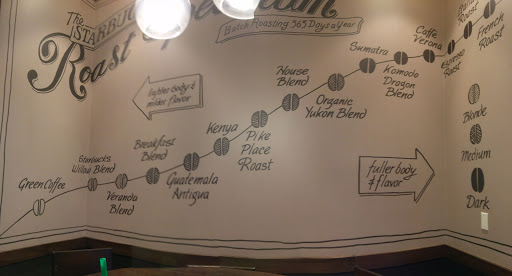 The
STARBUCKS
Roast Spectrum
Batch Roasting 365 Days a Year
lighter body &
milder flavor
Green Coffee
Starbucks
Willow Blend
Veranda
Blend
Breakfast
Blend
Guatemala
Antigua
Kenya
Pike
Place
Roast
House
Blend
Organic
Yukon Blend
Sumatra
Komodo
Dragon
Blend
Caffè
Verona
Espresso
Roast
Italian
Roast
French
Roast
fuller body
& flavor
Blonde
Medium
Dark